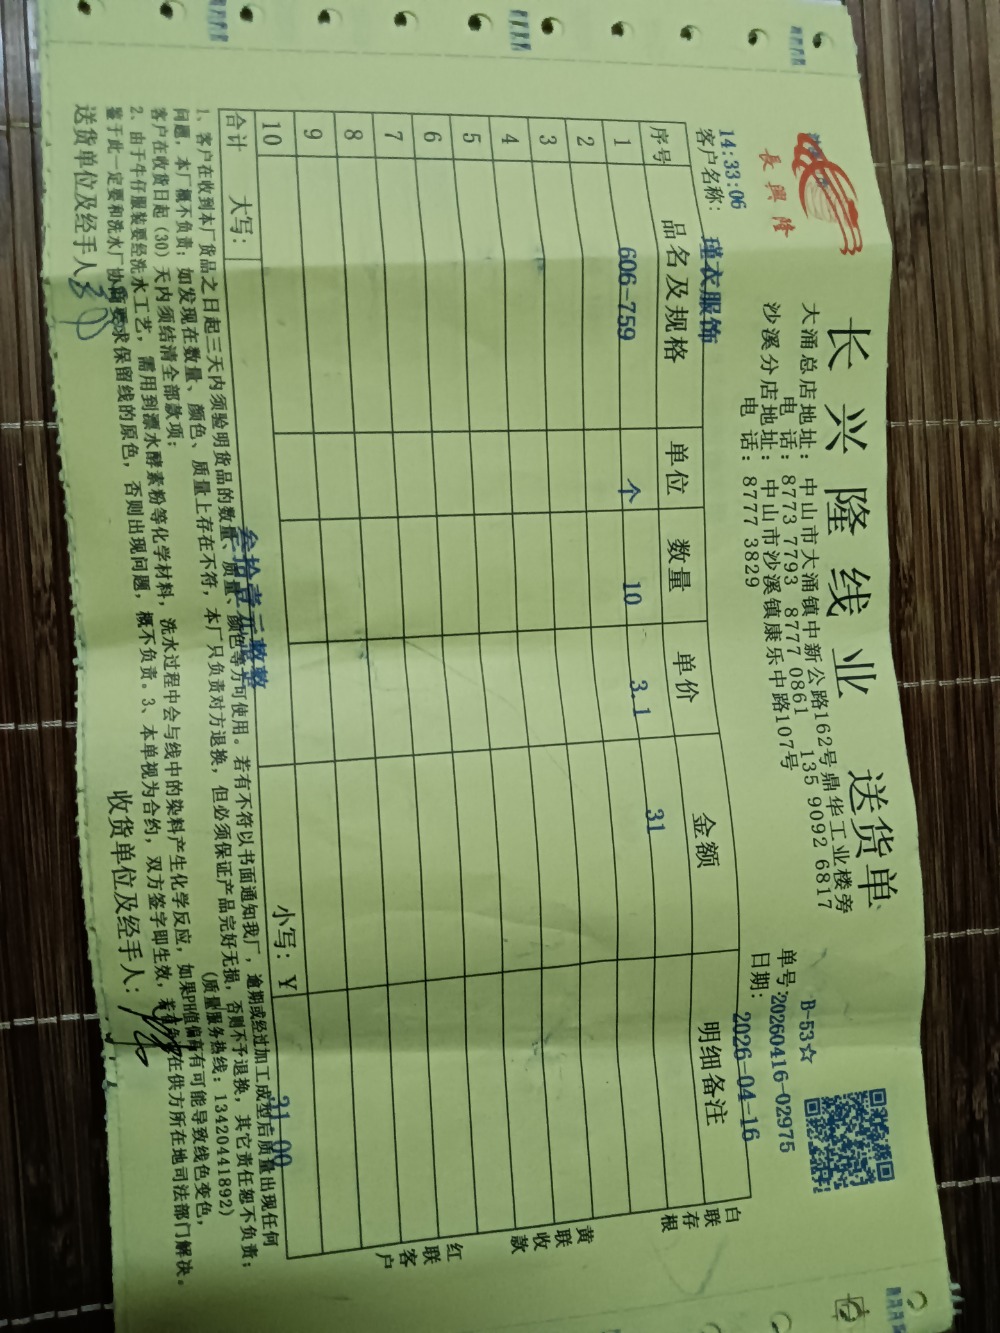 長興隆
长兴隆线业 送货单
大涌总店地址：中山市大涌镇中新公路162号鼎华工业楼旁
电 话：8773 7793 8777 0861 135 9092 6817
沙溪分店地址：中山市沙溪镇康乐中路107号
电 话：8777 3829
B-53☆
单号：20260416-02975
日期：2026-04-16
14:33:06
客户名称：瑾衣服饰
序号 品名及规格 单位 数量 单价 金额 明细备注
1 606-759 个 10 3.1 31
2
3
4
5
6
7
8
9
10
合计 大写：叁拾壹元整整 小写：￥31.00
白联存根
黄联收款
红联客户
1、客户在收到本厂货品之日起三天内须验明货品的数量、质量、颜色等方可使用。若有不符以书面通知我厂，逾期或经过加工成型后质量出现任何
问题，本厂概不负责；如发现在数量、颜色、质量上存在不符，本厂只负责对方退换，但必须保证产品完好无损，否则不予退换，其它责任恕不负责；
客户在收货日起（30）天内须结清全部款项； （质量服务热线：13420441892）
2、由于牛仔服装要经洗水工艺，需用到漂水酵素粉等化学材料，洗水过程中会与线中的染料产生化学反应，如果PH值偏高有可能导致线色变色，
鉴于此一定要和洗水厂协商要求保留线的原色，否则出现问题，概不负责。3、本单视为合约，双方签字即生效，若有争议在供方所在地司法部门解决。
送货单位及经手人： 收货单位及经手人：